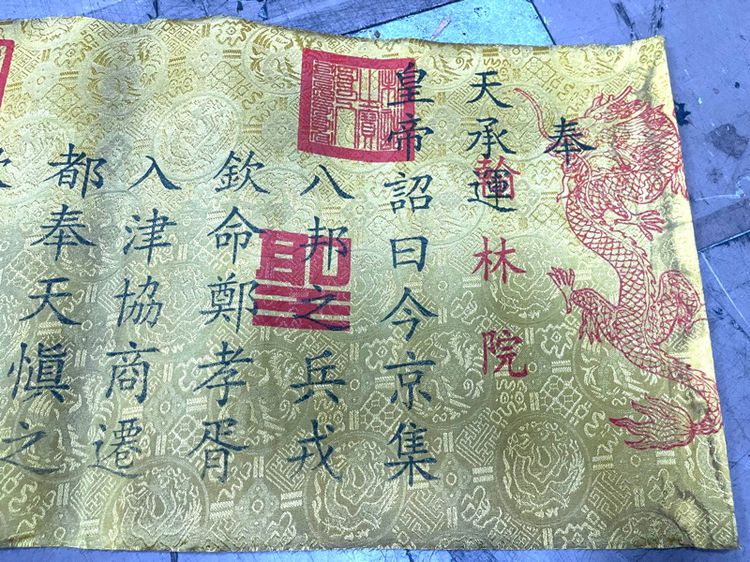 奉
天承運
翰林院
皇帝詔曰今京集
八邦之兵戎
欽命鄭孝胥
入津協商遷
都奉天慎之